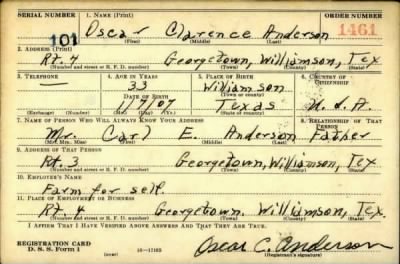 SERIAL NUMBER 1. NAME (Print) ORDER NUMBER
101 Oscar Clarence Anderson 1461
(First) (Middle) (Last)
2. ADDRESS (Print)
Rt. 4 Georgetown, Williamson, Tex
(Number and street or R. F. D. number) (Town) (County) (State)
3. TELEPHONE 4. AGE IN YEARS 5. PLACE OF BIRTH 6. COUNTRY OF CITIZENSHIP
— 33 Williamson
DATE OF BIRTH (Town or county)
1/7/07 Texas U.S.A.
(Exchange) (Number) (Mo.) (Day) (Yr.) (State or country)
7. NAME OF PERSON WHO WILL ALWAYS KNOW YOUR ADDRESS 8. RELATIONSHIP OF THAT PERSON
Mr. Carl E. Anderson Father
(Mr., Mrs., Miss) (First) (Middle) (Last)
9. ADDRESS OF THAT PERSON
Rt. 3 Georgetown, Williamson, Tex.
(Number and street or R. F. D. number) (Town) (County) (State)
10. EMPLOYER'S NAME
Farm for self.
11. PLACE OF EMPLOYMENT OR BUSINESS
Rt. 4 Georgetown, Williamson, Tex.
(Number and street or R. F. D. number) (Town) (County) (State)
I AFFIRM THAT I HAVE VERIFIED ABOVE ANSWERS AND THAT THEY ARE TRUE.
REGISTRATION CARD
D. S. S. Form 1 16—17105 Oscar C. Anderson
(Registrant's signature)